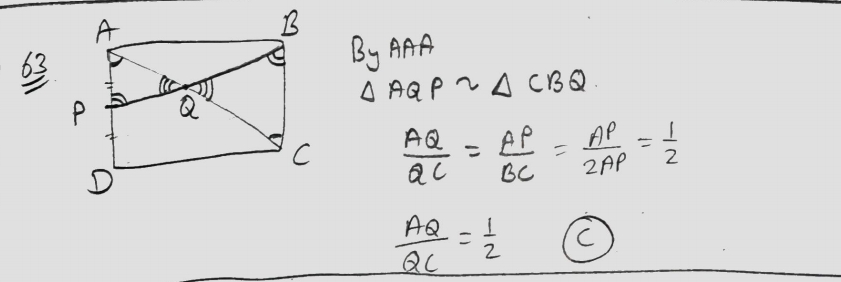 63
A B
P Q
D C
By AAA
Δ AQP ~ Δ CBQ.
AQ/QC = AP/BC = AP/2AP = 1/2
AQ/QC = 1/2 C